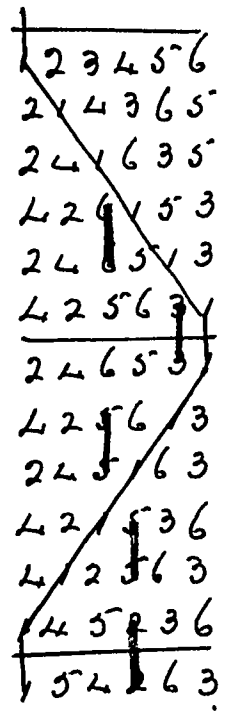 1 2 3 4 5 6
2 1 4 3 6 5
2 4 1 6 3 5
4 2 6 1 5 3
2 4 6 5 1 3
4 2 5 6 3 1
2 4 6 5 3 1
4 2 5 6 1 3
2 4 5 1 6 3
4 2 1 5 3 6
4 1 2 5 6 3
1 4 5 2 3 6
1 5 4 2 6 3.